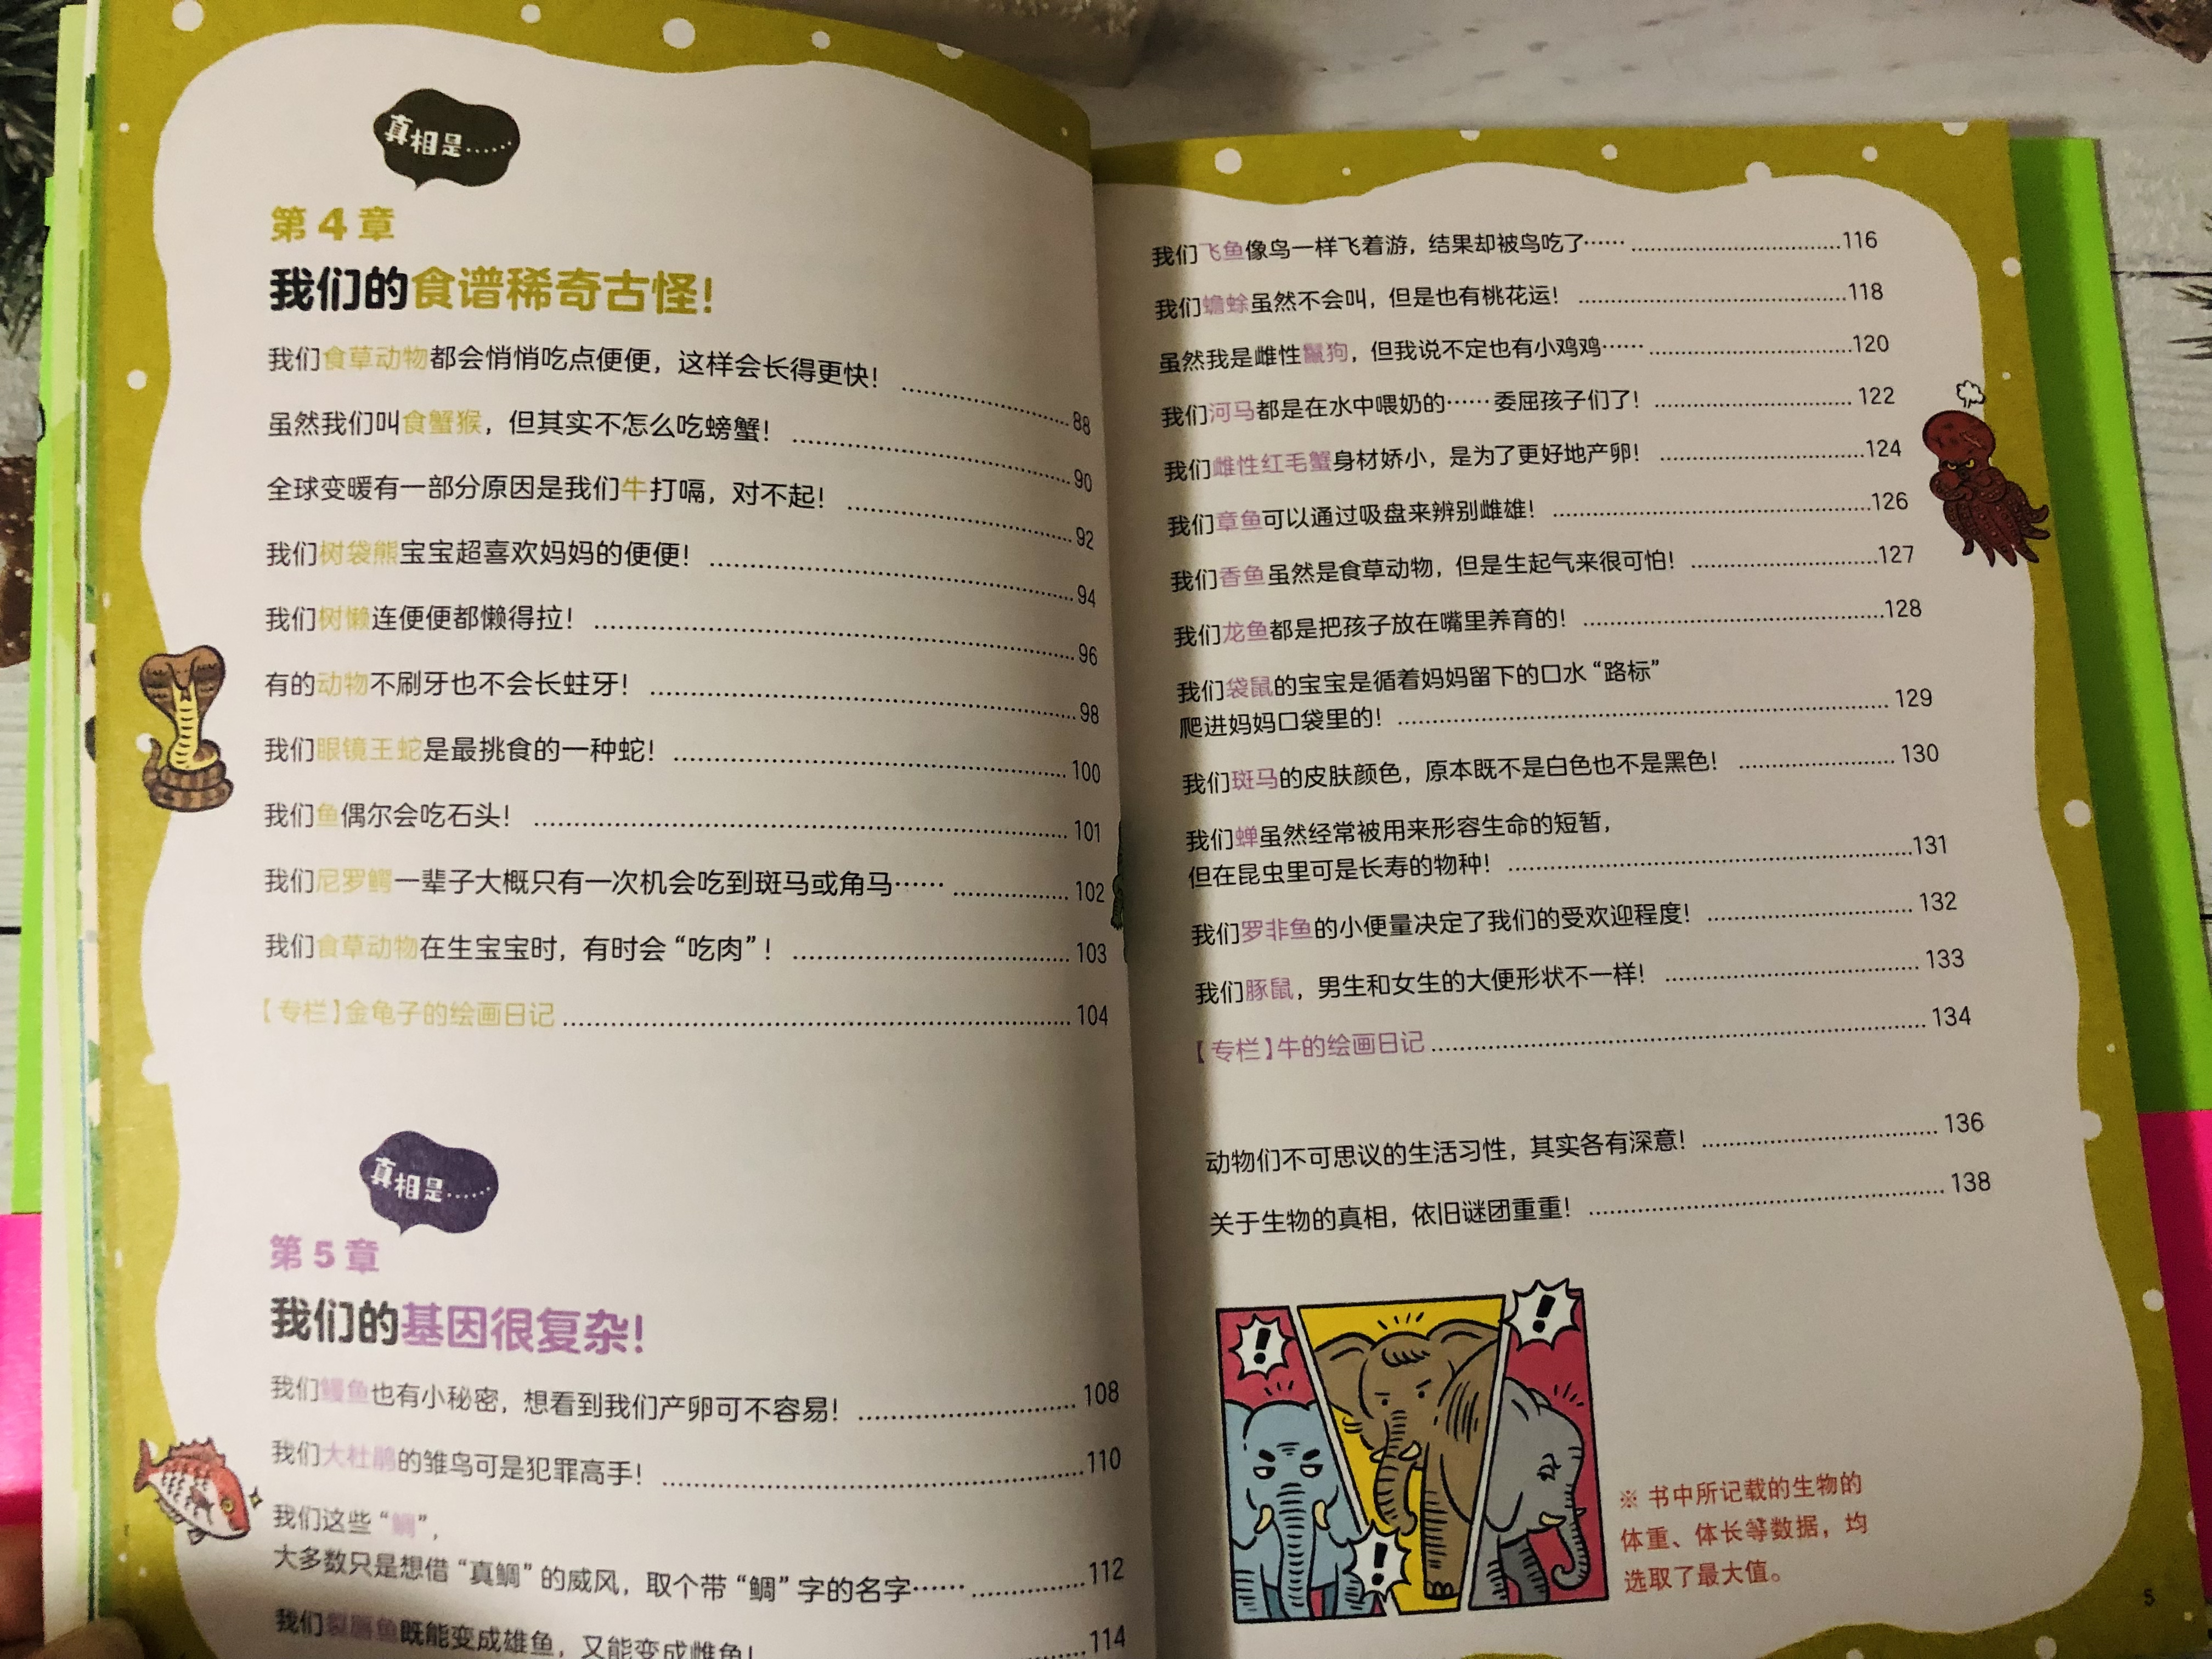 真相是……
第4章
我们的食谱稀奇古怪！
我们食草动物都会悄悄吃点便便，这样会长得更快！ 88
虽然我们叫食蟹猴，但其实不怎么吃螃蟹！ 90
全球变暖有一部分原因是我们牛打嗝，对不起！ 92
我们树袋熊宝宝超喜欢妈妈的便便！ 94
我们树懒连便便都懒得拉！ 96
有的动物不刷牙也不会长蛀牙！ 98
我们眼镜王蛇是最挑食的一种蛇！ 100
我们鱼偶尔会吃石头！ 101
我们尼罗鳄一辈子大概只有一次机会吃到斑马或角马…… 102
我们食草动物在生宝宝时，有时会“吃肉”！ 103
【专栏】金龟子的绘画日记 104
真相是……
第5章
我们的基因很复杂！
我们鳗鱼也有小秘密，想看到我们产卵可不容易！ 108
我们大杜鹃的雏鸟可是犯罪高手！ 110
我们这些“鲷”，
大多数只是想借“真鲷”的威风，取个带“鲷”字的名字…… 112
我们裂唇鱼既能变成雄鱼，又能变成雌鱼！ 114
我们飞鱼像鸟一样飞着游，结果却被鸟吃了…… 116
我们蟾蜍虽然不会叫，但是也有桃花运！ 118
虽然我是雌性鬣狗，但我说不定也有小鸡鸡…… 120
我们河马都是在水中喂奶的……委屈孩子们了！ 122
我们雌性红毛蟹身材娇小，是为了更好地产卵！ 124
我们章鱼可以通过吸盘来辨别雌雄！ 126
我们香鱼虽然是食草动物，但是生起气来很可怕！ 127
我们龙鱼都是把孩子放在嘴里养育的！ 128
我们袋鼠的宝宝是循着妈妈留下的口水“路标”
爬进妈妈口袋里的！ 129
我们斑马的皮肤颜色，原本既不是白色也不是黑色！ 130
我们蝉虽然经常被用来形容生命的短暂，
但在昆虫里可是长寿的物种！ 131
我们罗非鱼的小便量决定了我们的受欢迎程度！ 132
我们豚鼠，男生和女生的大便形状不一样！ 133
【专栏】牛的绘画日记 134
动物们不可思议的生活习性，其实各有深意！ 136
关于生物的真相，依旧谜团重重！ 138
！
！
！
※ 书中所记载的生物的
体重、体长等数据，均
选取了最大值。
5